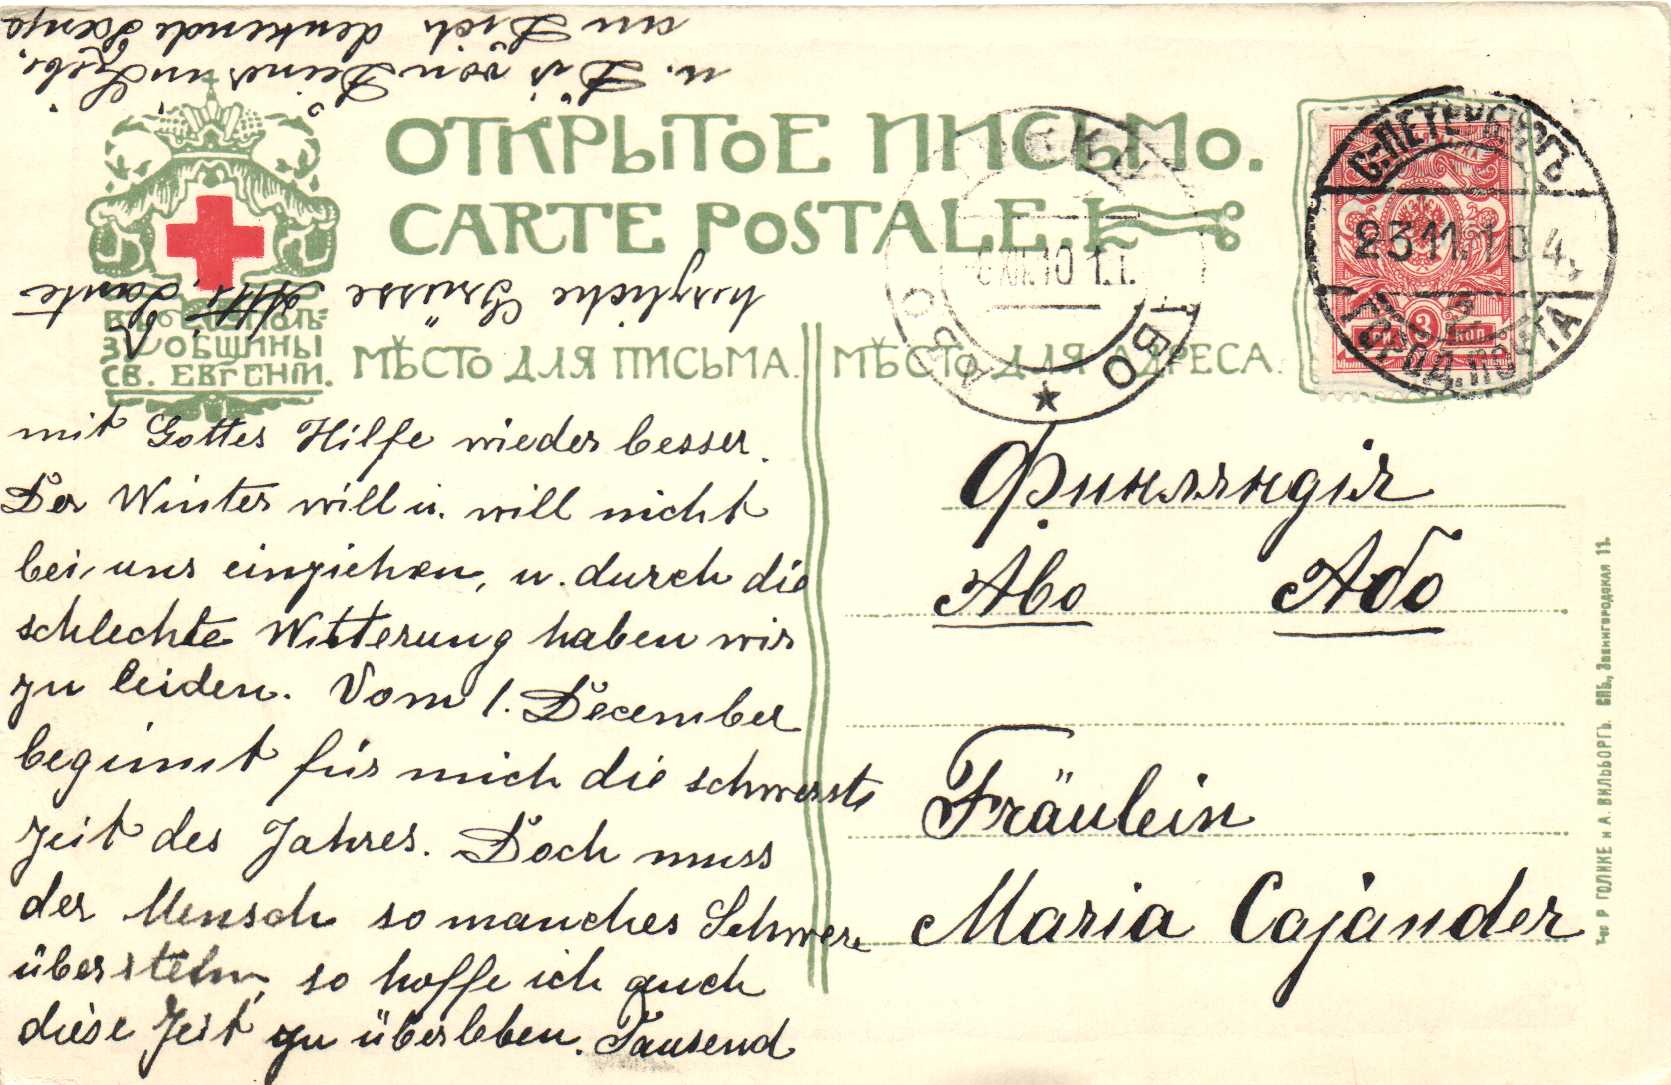 ОТКРЫТОЕ ПИСЬМО.
CARTE POSTALE.
В пользу
общины
Св. Евгении.
МѢСТО ДЛЯ ПИСЬМА.
МѢСТО ДЛЯ АДРЕСА.
С.ПЕТЕРБУРГЪ
23.11.10 4
ГОРОД. ПОЧТА
3 КОП
TURKU
XII.10 1.I.
ABO
mit Gottes Hilfe wieder besser.
Der Winter will u. will nicht
bei uns einziehen, u. durch die
schlechte Witterung haben wir
zu leiden. Vom 1. December
beginnt für mich die schwerste
Zeit des Jahres. Doch muss
der Mensch so manches Schwere
überstehn, so hoffe ich auch
diese Zeit zu überleben. Tausend
herzliche Grüsse Tante
u. Dir von Deiner in Liebe,
an Dich denkende Xenja
Финляндія
Abo Або
Fräulein
Maria Cajander
Т-во Р. ГОЛИКЕ и А. ВИЛЬБОРГЪ. СПБ., Звенигородская 11.